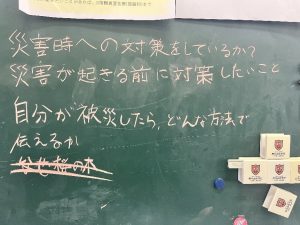 災害時への対策をしているか?
災害が起きる前に対策したいこと
自分が被災したら、どんな方法で
伝えるか